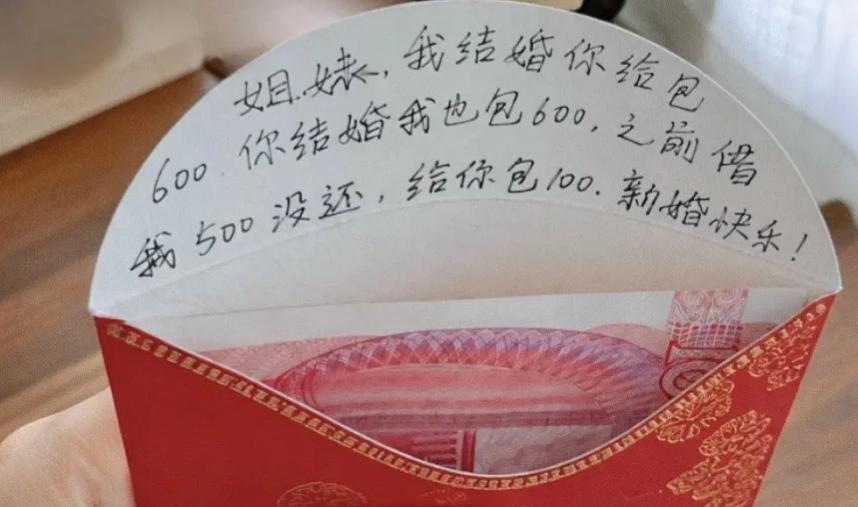 姐妹，我结婚你给包
600 你结婚我也包600，之前借
我500没还，给你包100. 新婚快乐！